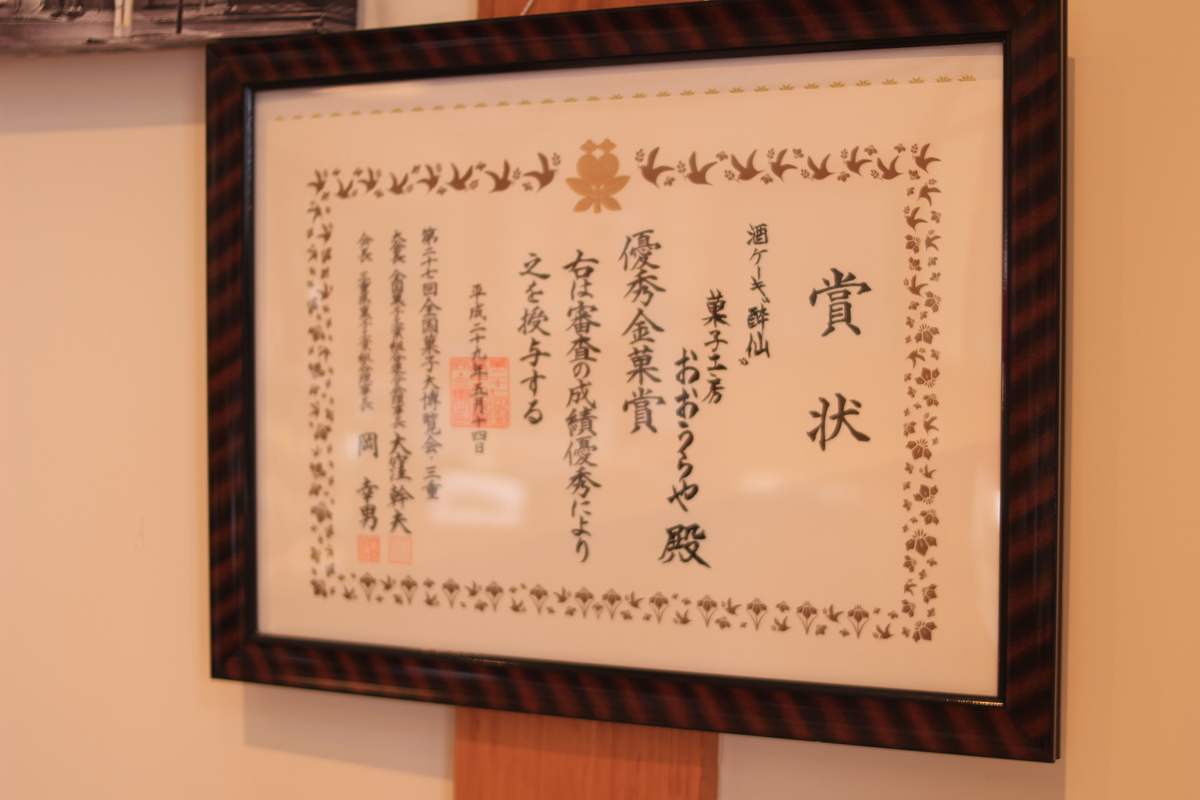 賞状
酒ケーキ、酔仙。
菓子工房
おおうらや 殿
優秀金菓賞
右は審査の成績優秀により
之を授与する
平成二十九年五月十四日
第二十七回全国菓子大博覧会・三重
大会長 全国菓子工業組合連合会理事長 大窪 幹夫
会長 三重県菓子工業組合理事長 岡 幸男